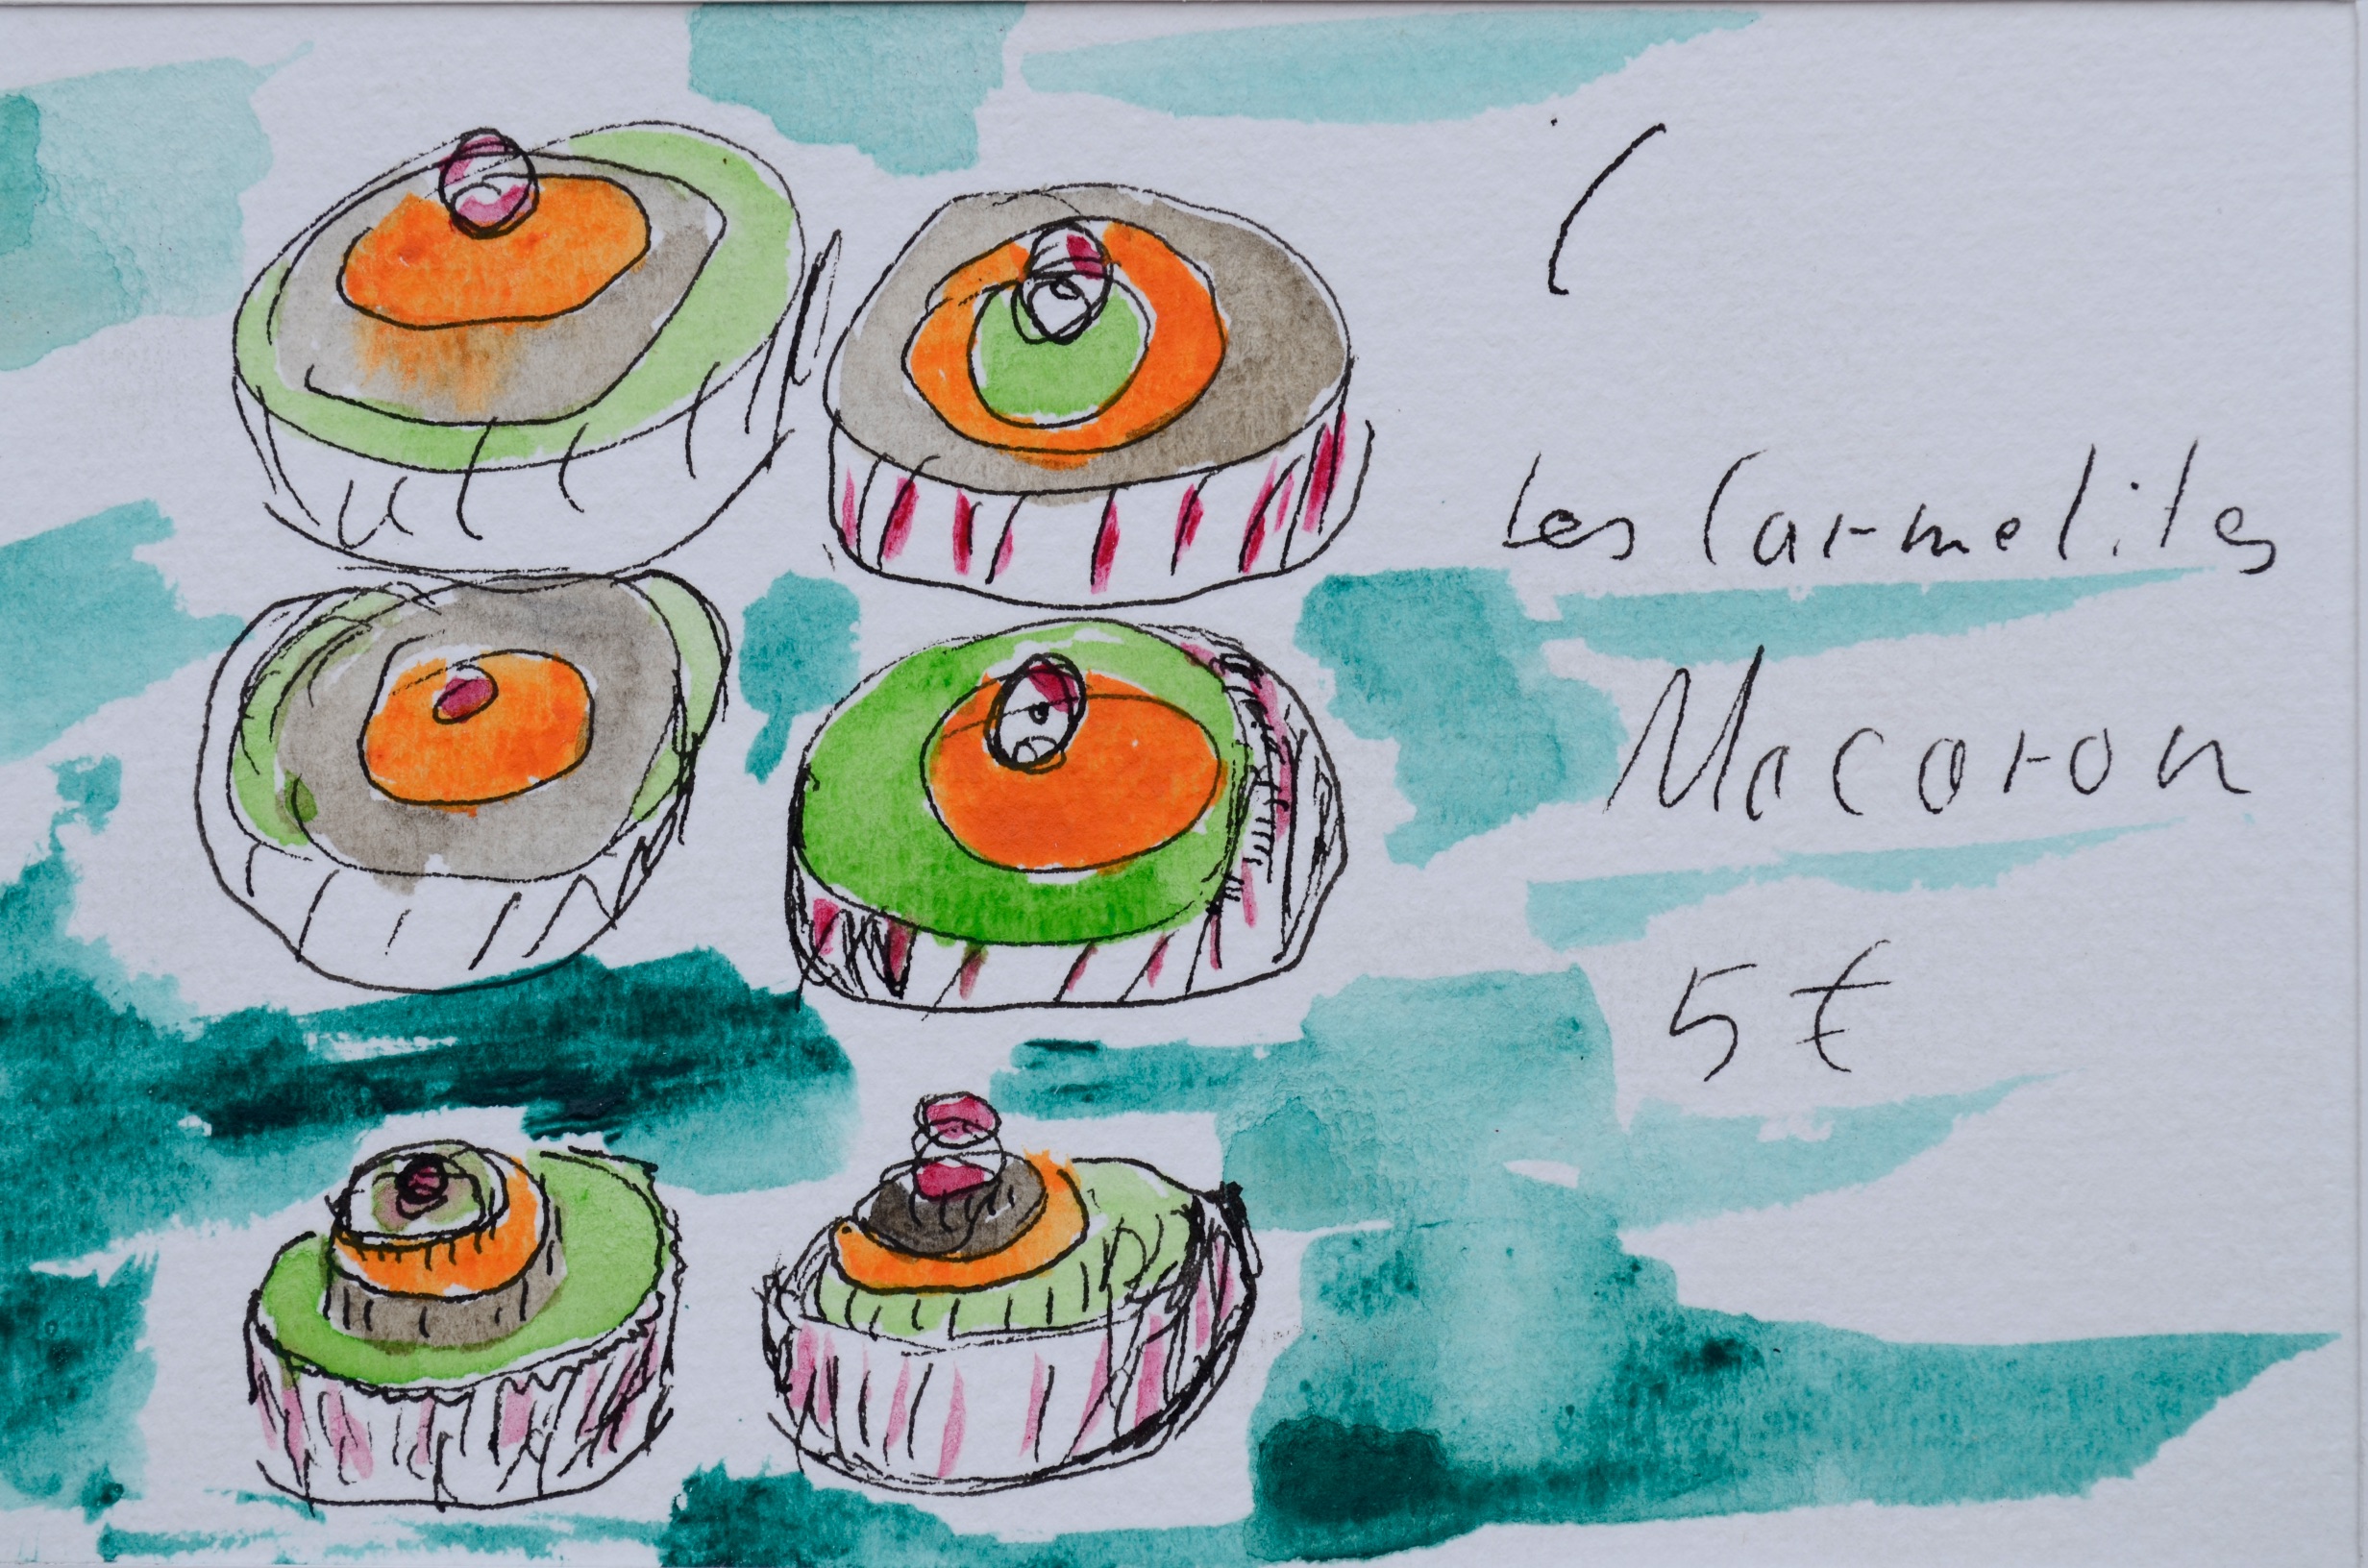 Les Carmelites
Macaron
5 €